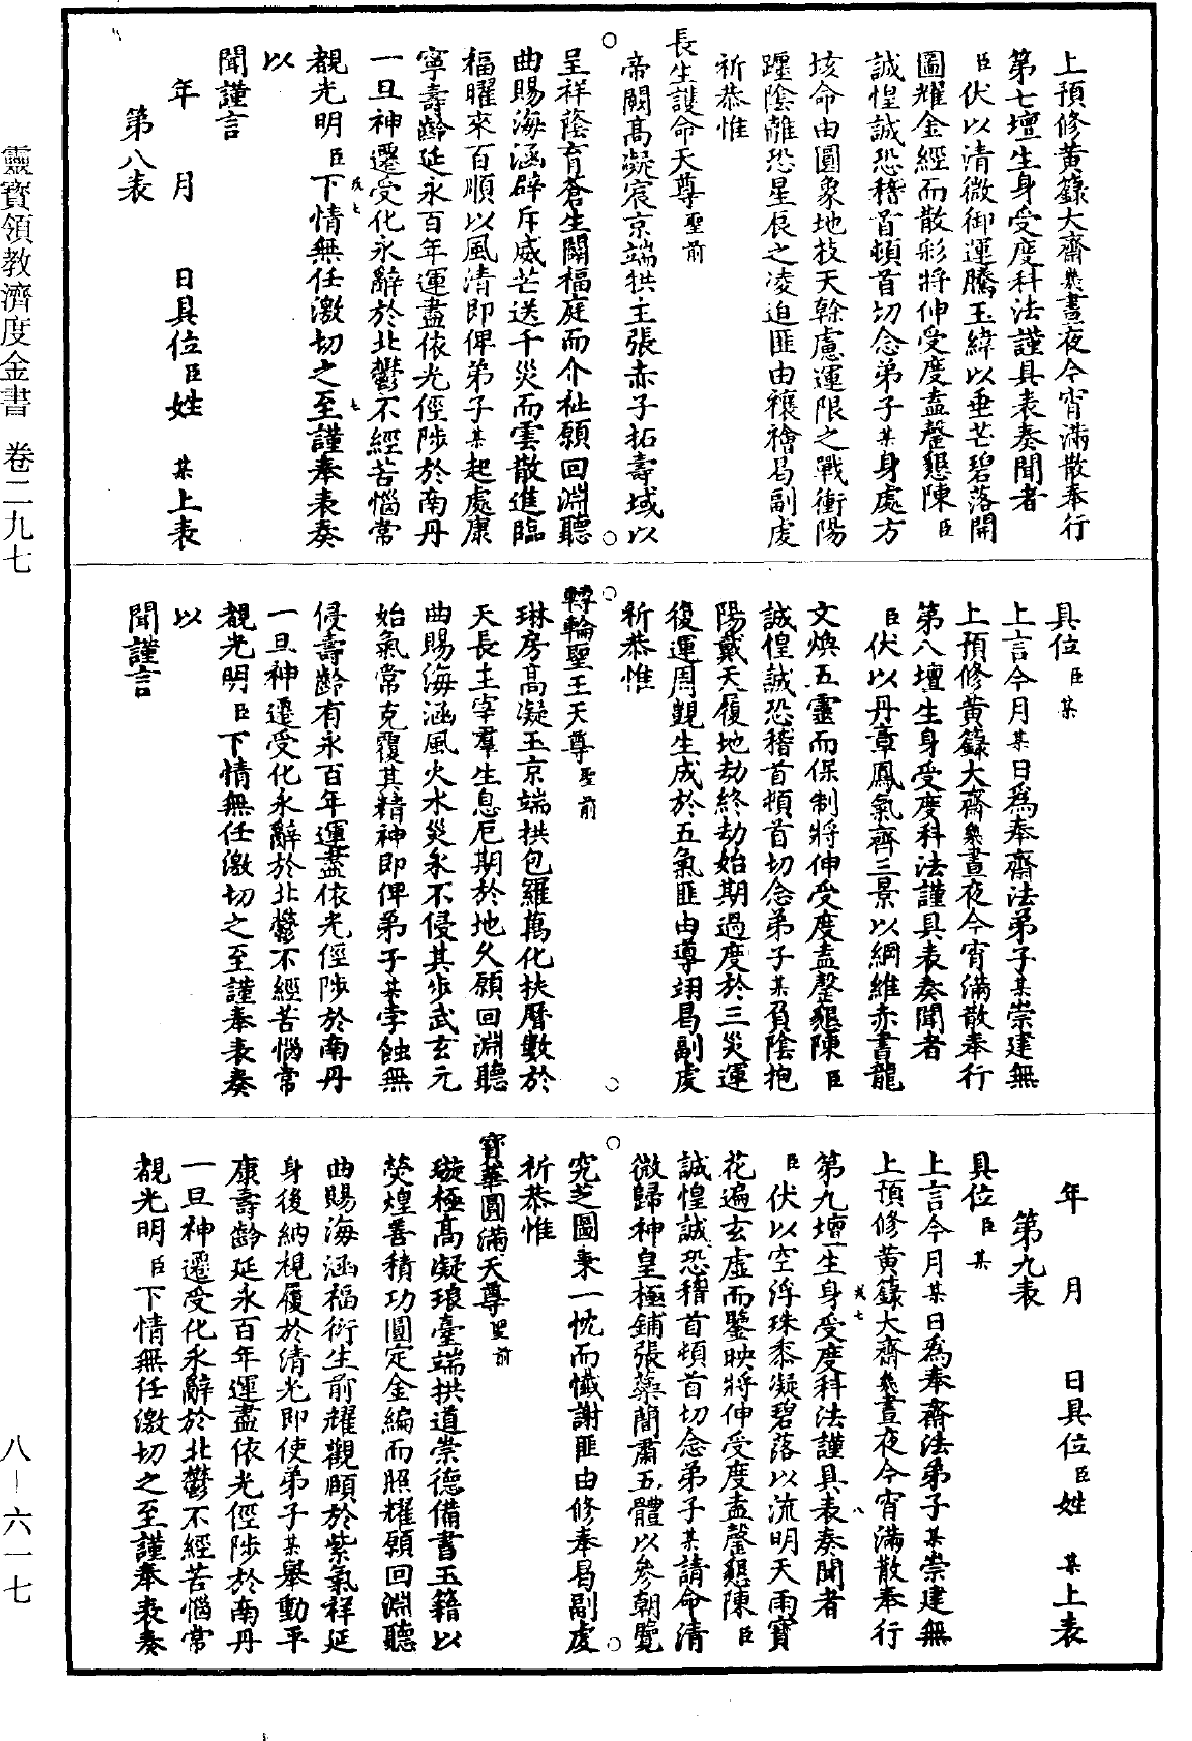 上預修黃籙大齋幾晝夜今宵滿散奉行
第七壇生身受度科法謹具表奏聞者
臣伏以清微御運騰玉緯以垂芒碧落開
圖耀金經而散彩將伸受度盍罄懇陳臣
誠惶誠恐稽首頓首切念弟子某身處方
垓命由圓象地技天榦慮運限之戰衝陽
躔陰離恐星辰之凌迫匪由禳禬曷副虔
祈恭惟
長生護命天尊聖前
帝闕高凝宸京端拱主張赤子拓壽域以
呈祥蔭育蒼生闢福庭而介祉願回淵聽
曲賜海涵辟斥威芒送千災而雲散進臨
福曜來百順以風清即俾弟子某起處康
寧壽齡延永百年運盡依光俓陟於南丹
一旦神遷受化永辭於北鬱不經苦惱常
覩光明臣下情無任激切之至謹奉表奏
以
聞謹言
年　月　日具位臣姓　某上表
第八表
具位臣某
上言今月某日爲奉齋法弟子某崇建無
上預修黃籙大齋幾晝夜今宵滿散奉行
第八壇生身受度科法謹具表奏聞者
臣伏以丹章鳳氣齊三景以綱維赤書龍
文煥五靈而保制將伸受度盍罄懇陳臣
誠惶誠恐稽首頓首切念弟子某負陰抱
陽戴天履地劫終劫始期過度於三災運
復運周覬生成於五氣匪由導翊曷副虔
祈恭惟
轉輪聖王天尊聖前
琳房高凝玉京端拱包羅萬化扶曆數於
天長主宰羣生息厄期於地久願回淵聽
曲賜海涵風火水災永不侵其步武玄元
始氣常克覆其精神即俾弟子某孛蝕無
侵壽齡有永百年運盡依光俓陟於南丹
一旦神遷受化永辭於北鬱不經苦惱常
覩光明臣下情無任激切之至謹奉表奏
以
聞謹言
年　月　日具位臣姓　某上表
第九表
具位臣某
上言今月某日爲奉齋法弟子某崇建無
上預修黃籙大齋幾晝夜今宵滿散奉行
第九壇生身受度科法謹具表奏聞者
臣伏以空浮珠黍凝碧落以流明天雨寶
花遍玄虛而鑒映將伸受度盍罄懇陳臣
誠惶誠恐稽首頓首切念弟子某請命清
微歸神皇極鋪張蘂簡肅五體以參朝覽
究芝圖秉一忱而懺謝匪由修奉曷副虔
祈恭惟
寶華圓滿天尊聖前
璇極高凝琅臺端拱道崇德備書玉籍以
熒煌善積功圓定金編而照耀願回淵聽
曲賜海涵福衍生前耀觀頤於紫氣祥延
身後納視履於清光即使弟子某舉動平
康壽齡延永百年運盡依光俓陟於南丹
一旦神遷受化永辭於北鬱不經苦惱常
覩光明臣下情無任激切之至謹奉表奏
靈寶領教濟度金書　卷二九七
八—六一七